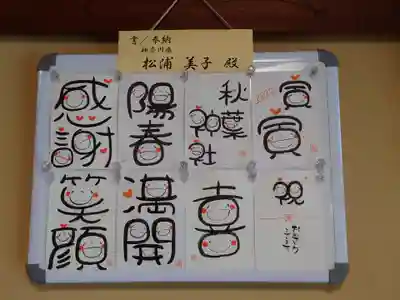 書／奉納
神奈川県
松浦 美子 殿
感謝
陽春
秋葉
神社
寅
寅
笑顔
満開
喜
祝